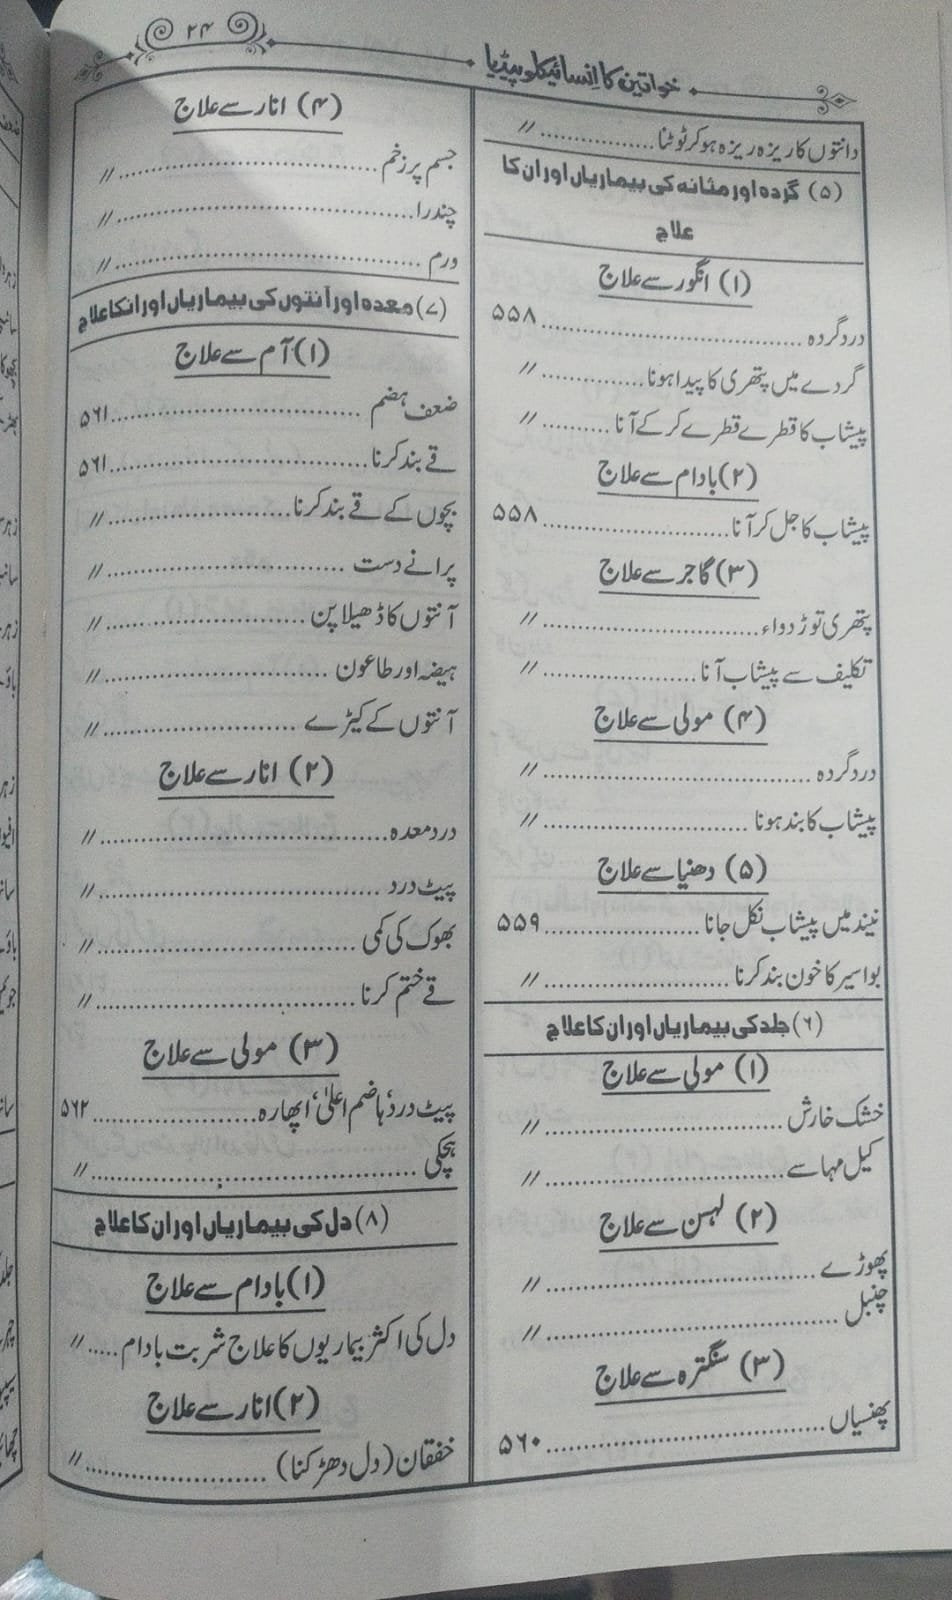 ۲۴
خواتین کا انسائیکلوپیڈیا
دانتوں کا ریزہ ریزہ ہوکر ٹوٹنا .......... //
(۵) گردہ اور مثانہ کی بیماریاں اور ان کا
علاج
(۱) انگور سے علاج
درد گردہ .......... ۵۵۸
گردے میں پتھری کا پیدا ہونا .......... //
پیشاب کا قطرے قطرے کر کے آنا .......... //
(۲) بادام سے علاج
پیشاب کا جل کر آنا .......... ۵۵۸
(۳) گاجر سے علاج
پتھری توڑ دواء .......... //
تکلیف سے پیشاب آنا .......... //
(۴) مولی سے علاج
درد گردہ .......... //
پیشاب کا بند ہونا .......... //
(۵) دھنیا سے علاج
نیند میں پیشاب نکل جانا .......... ۵۵۹
بواسیر کا خون بند کرنا .......... //
(۶) جلد کی بیماریاں اور ان کا علاج
(۱) مولی سے علاج
خشک خارش .......... //
کیل مہاسے .......... //
(۲) لہسن سے علاج
پھوڑے .......... //
چنبل .......... //
(۳) سنگترہ سے علاج
پھنسیاں .......... ۵۶۰
(۴) انار سے علاج
جسم پر زخم .......... //
چندرا .......... //
ورم .......... //
(۷) معدہ اور آنتوں کی بیماریاں اور انکا علاج
(۱) آم سے علاج
ضعف ہضم .......... ۵۶۱
قے بند کرنا .......... ۵۶۱
بچوں کے قے بند کرنا .......... //
پرانے دست .......... //
آنتوں کا ڈھیلا پن .......... //
ہیضہ اور طاعون .......... //
آنتوں کے کیڑے .......... //
(۲) انار سے علاج
درد معدہ .......... //
پیٹ درد .......... //
بھوک کی کمی .......... //
قے ختم کرنا .......... //
(۳) مولی سے علاج
پیٹ درد' ہاضم اعلیٰ' اپھارہ .......... ۵۶۲
ہچکی .......... //
(۸) دل کی بیماریاں اور ان کا علاج
(۱) بادام سے علاج
دل کی اکثر بیماریوں کا علاج شربت بادام ..... //
(۲) انار سے علاج
خفقان (دل دھڑکنا) .......... //